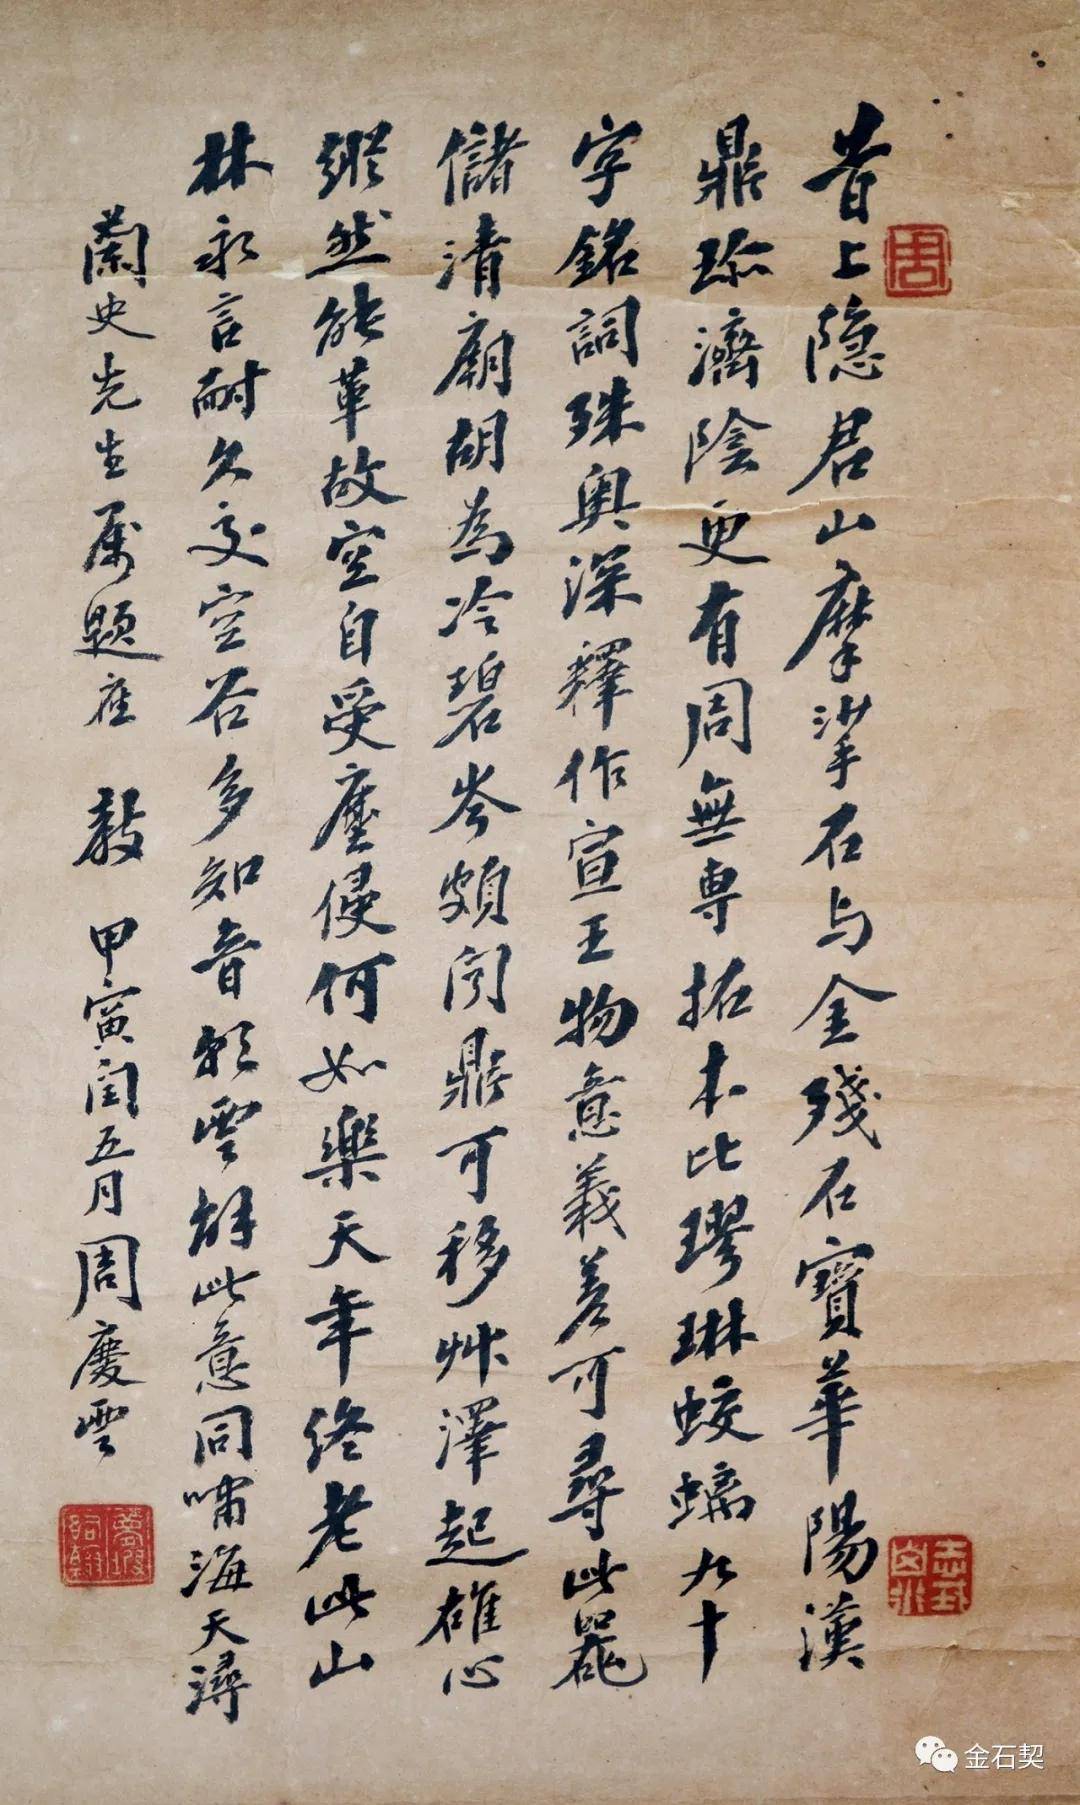 昔上隱君山摩挲石与金殘石寶華陽漢
鼎珎濟陰更有周無専拓本比璆琳蛟螭九十
字銘詞殊奥深釋作宣王物意義差可尋此器
儲清廟胡為冷碧岑頗聞鼎可移艸澤起雄心
縱然能革故空自受塵侵何如樂天年終老此山
林永言耐久交空谷多知音龍雲解此意同嘯海天潯
蘭史先生属題應 教 甲寅閏五月周慶雲
周
夢坡
金石契